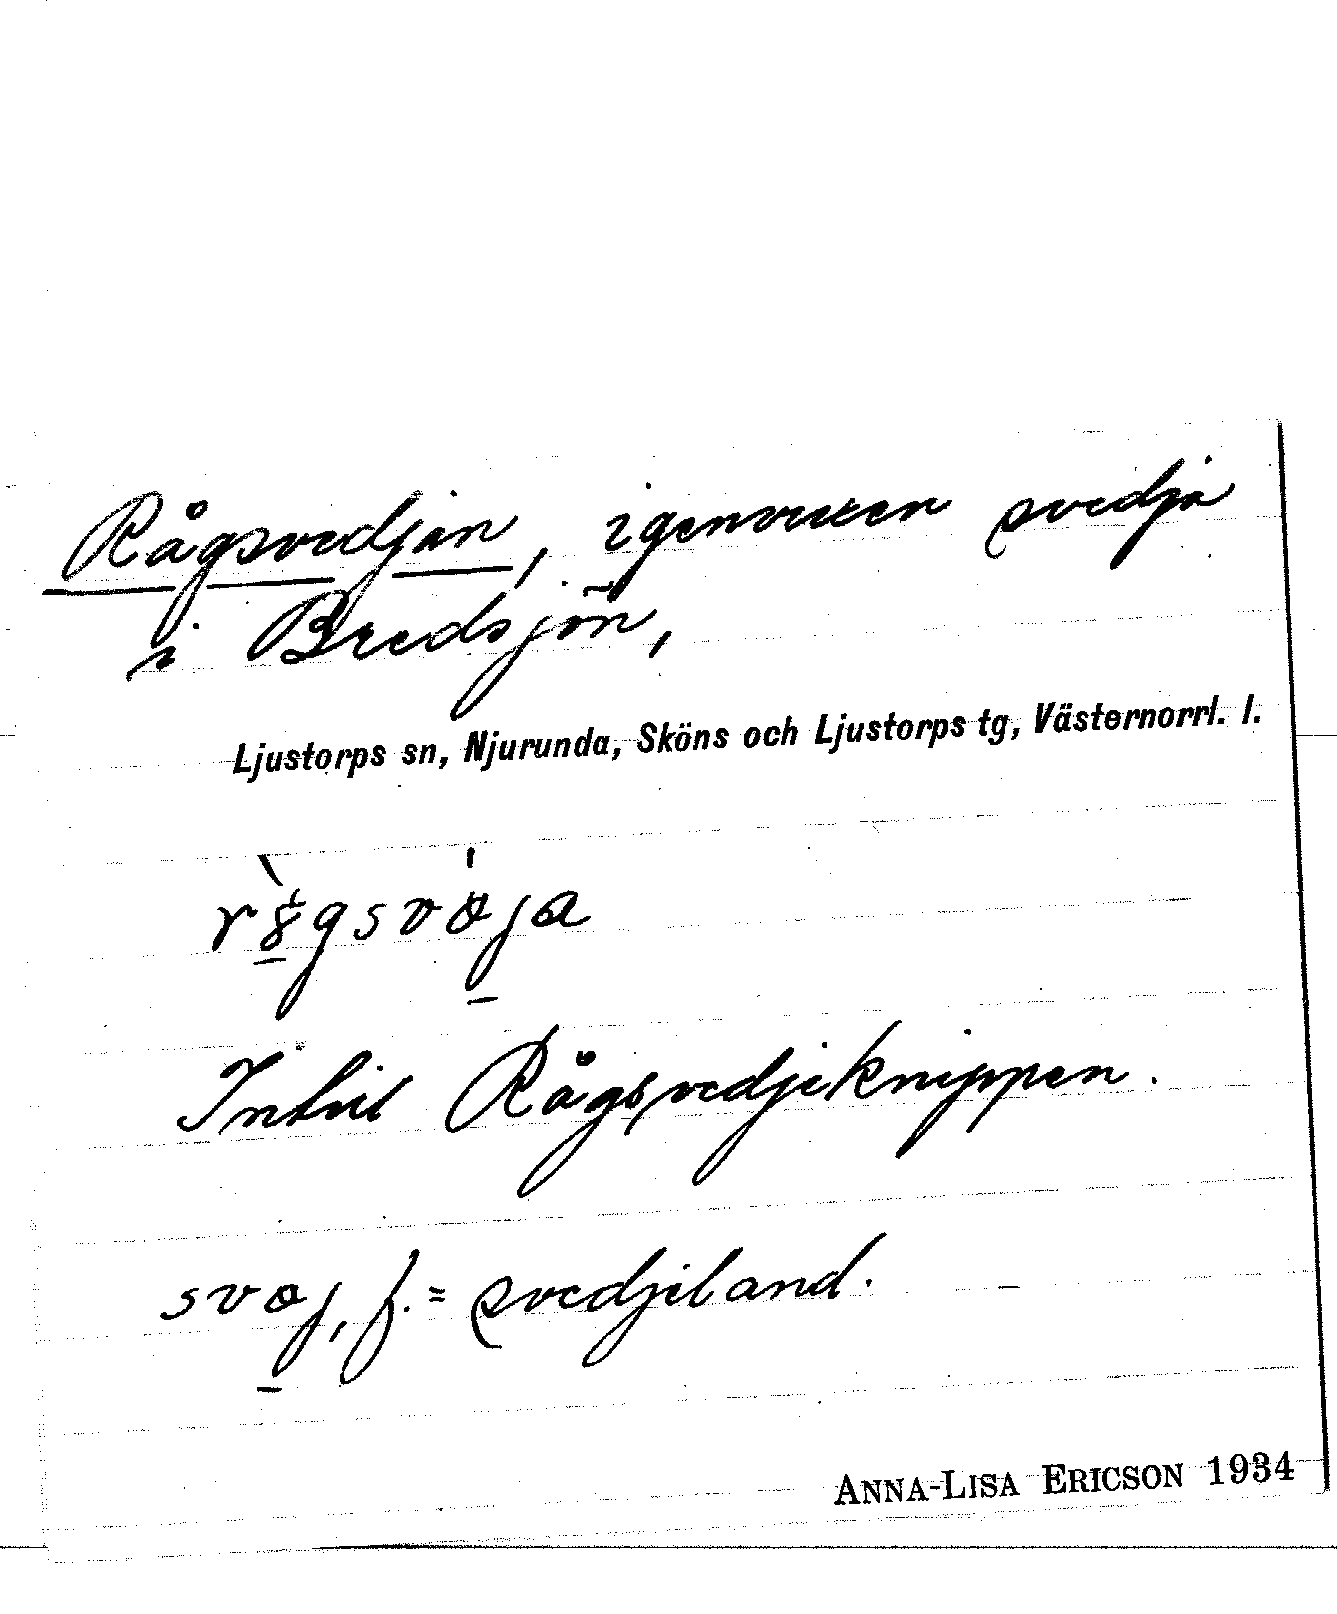 Rågsvedjan, igenvuxen svedja
i Bredsjön,
Ljustorps sn, Njurunda, Sköns och Ljustorps tg, Västernorrl. l.
Intill Rågsvedjeknippen.
svɵj, f. = svedjeland.
ANNA-LISA ERICSON 1934